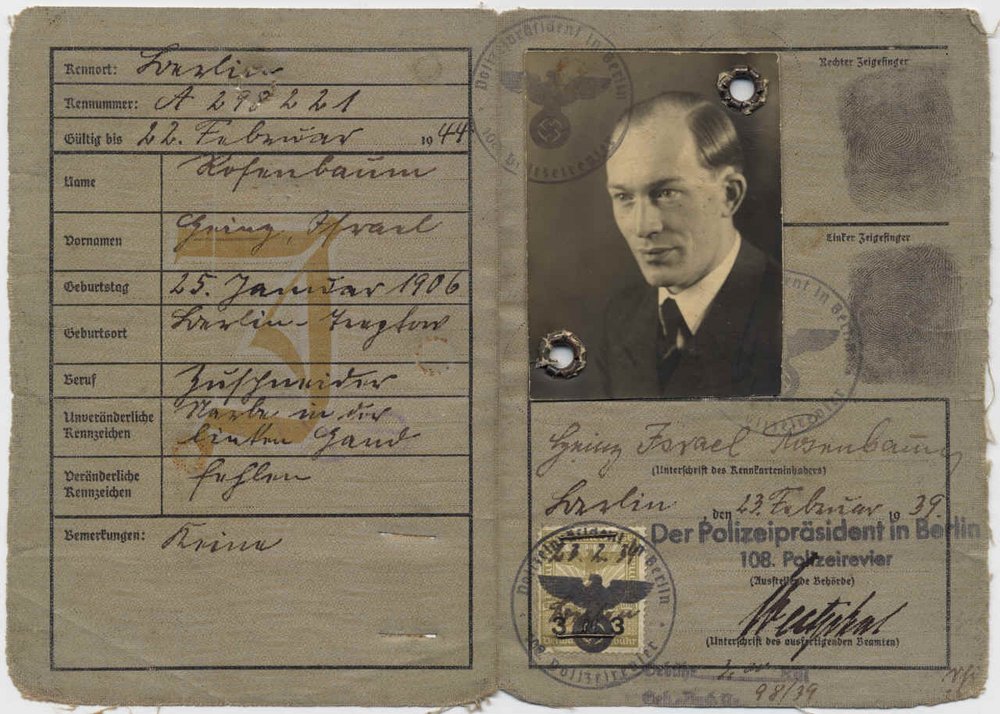 Kennort: Berlin
Kennummer: A 298221
Gültig bis 22. Februar 1944
Name Rosenbaum
Vornamen Heinz, Israel
Geburtstag 25. Januar 1906
Geburtsort Berlin-Treptow
Beruf Zuschneider
Unveränderliche Kennzeichen Narbe in der
linken Hand
Veränderliche Kennzeichen fehlen
Bemerkungen: Keine
J
Polizeipräsident in Berlin
108. Polizeirevier
Rechter Zeigefinger
Linker Zeigefinger
Heinz Israel Rosenbaum
(Unterschrift des Kennkarteninhabers)
Berlin, den 23. Februar 1939.
Der Polizeipräsident in Berlin
108. Polizeirevier
(Ausstellende Behörde)
(Unterschrift des ausfertigenden Beamten)
Polizeipräsident in Berlin
23.2.39
3 3
108. Polizeirevier
Gebühr
98/39